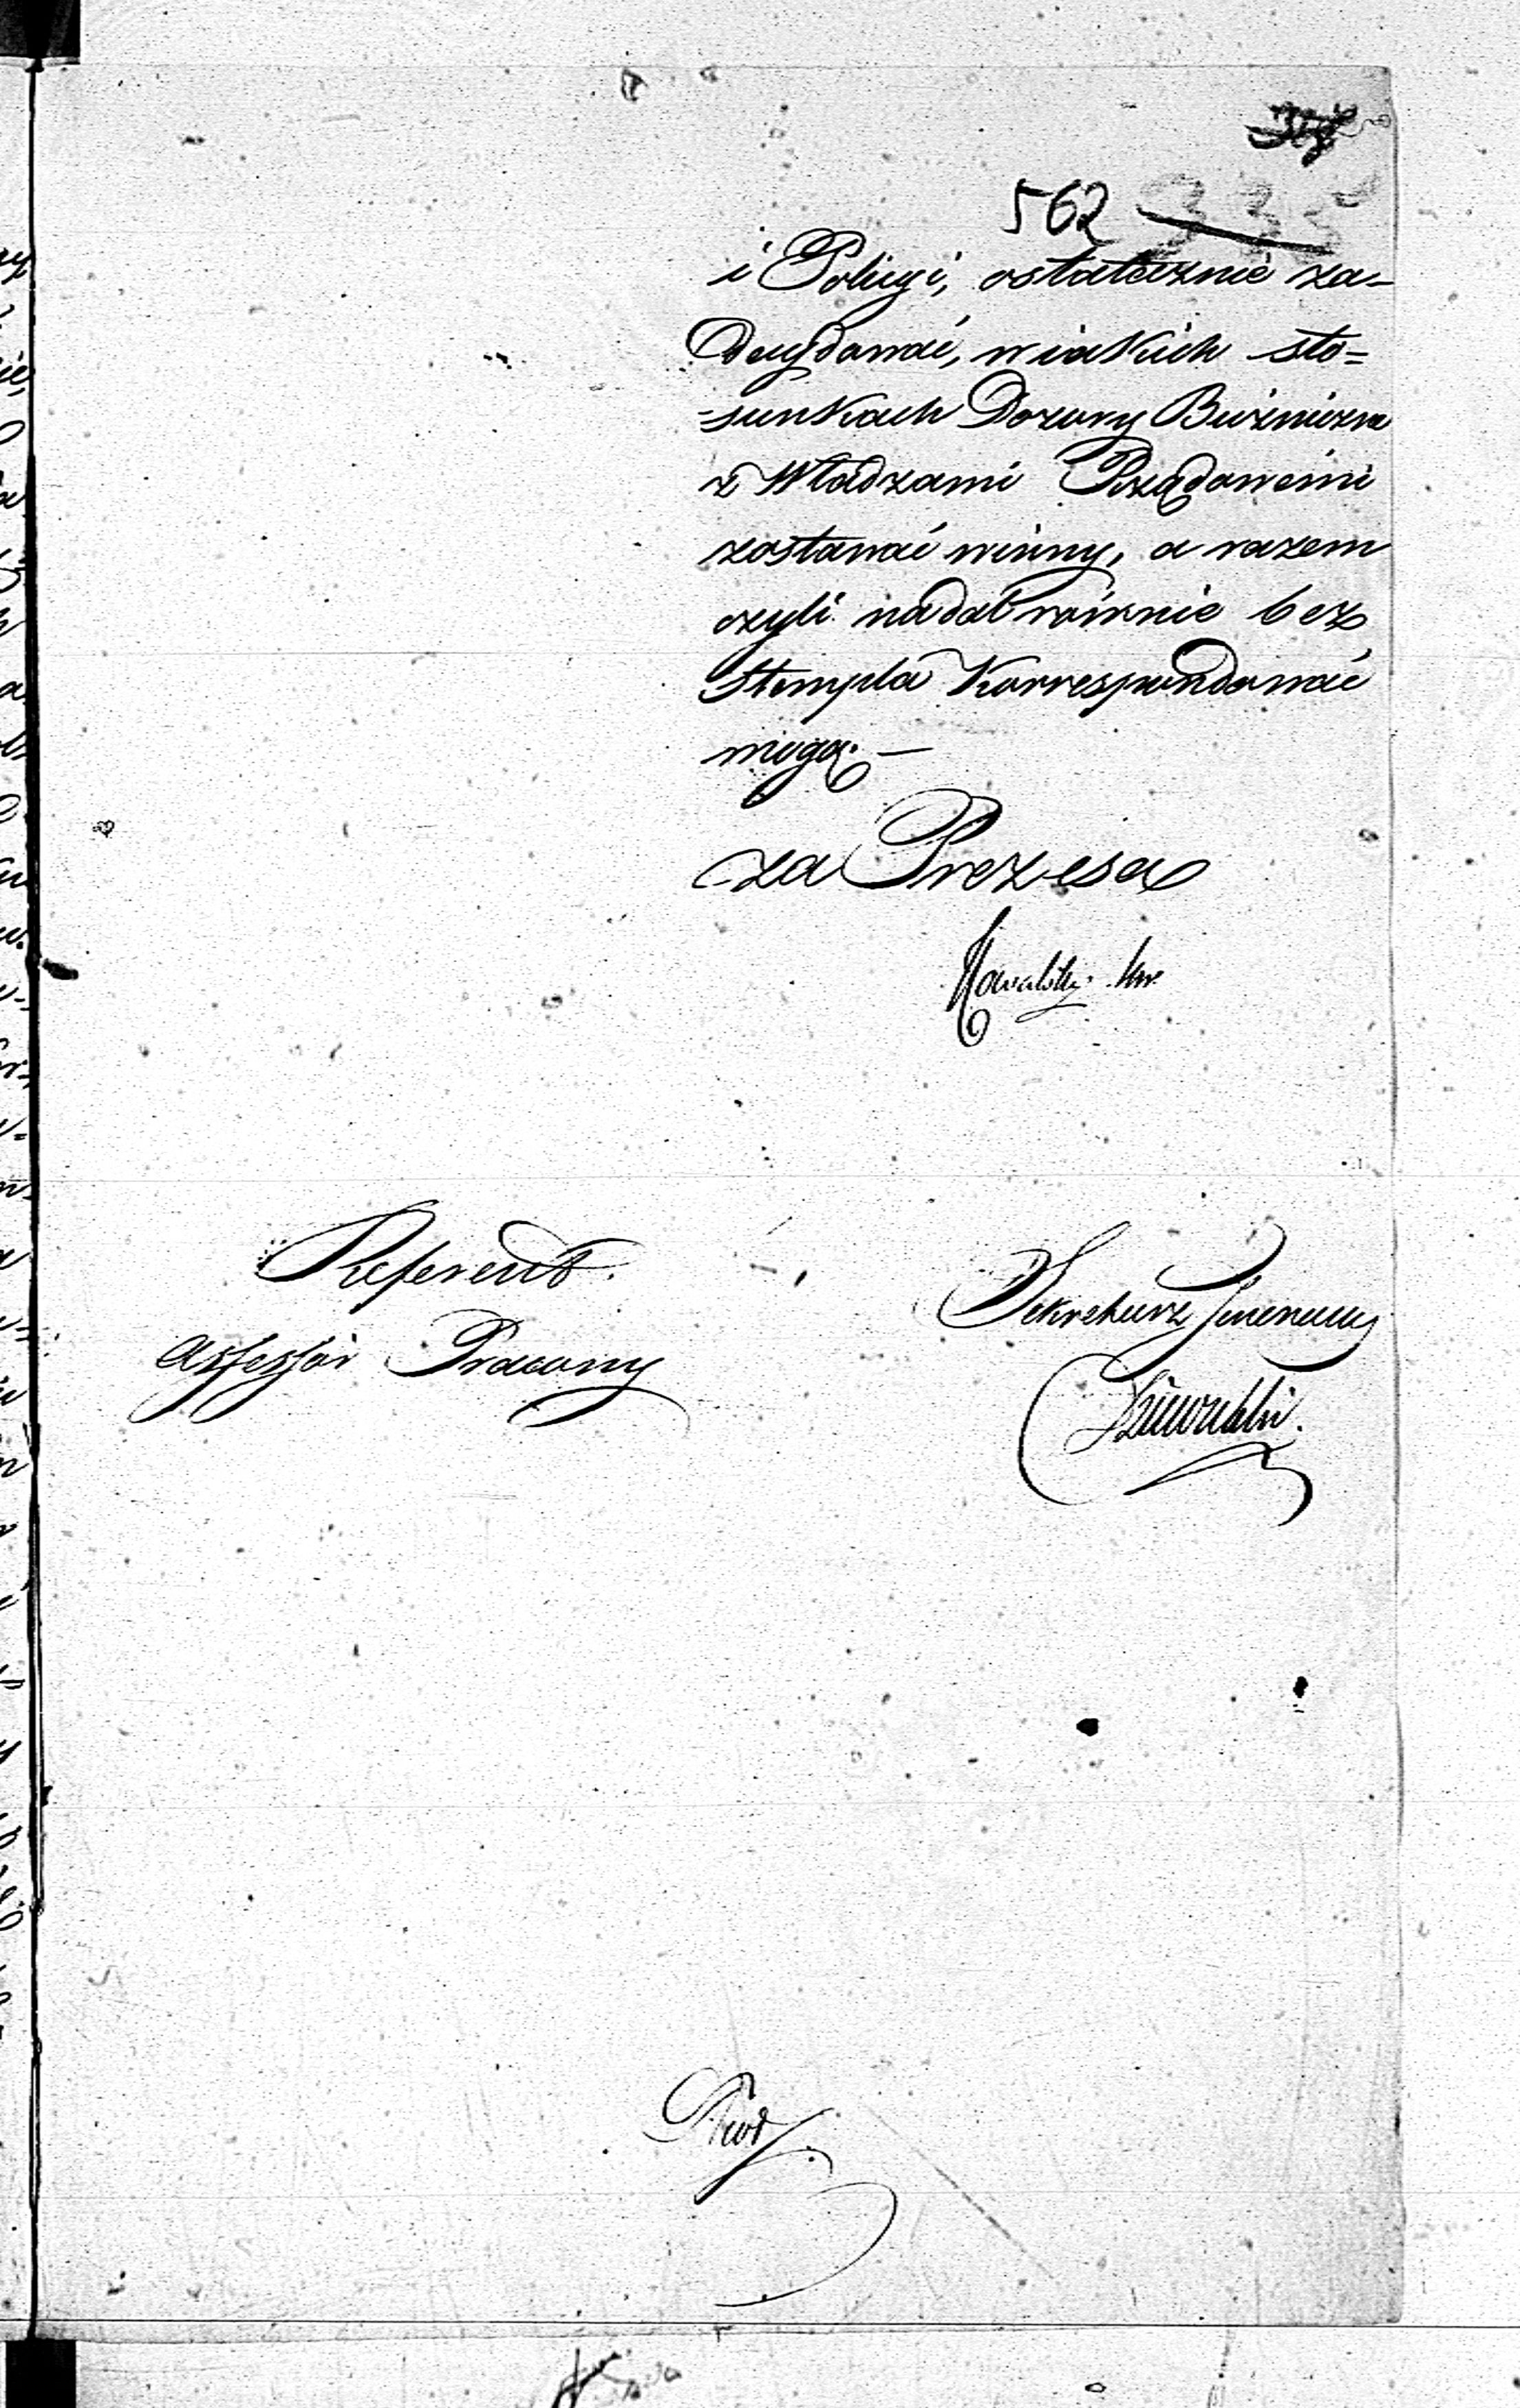 562 335
i Policyi, ostatecznie za-
decydować, w iakich sto=
-sunkach Dozory Bużnicze
z Władzami Rządowemi
zostawać winny, a razem
czyli nadal równie bez
Stempla Korrespondować
mogą. —
za Prezesa
Kowalsky
Referent.
Assessor
Sekretarz Jeneralny